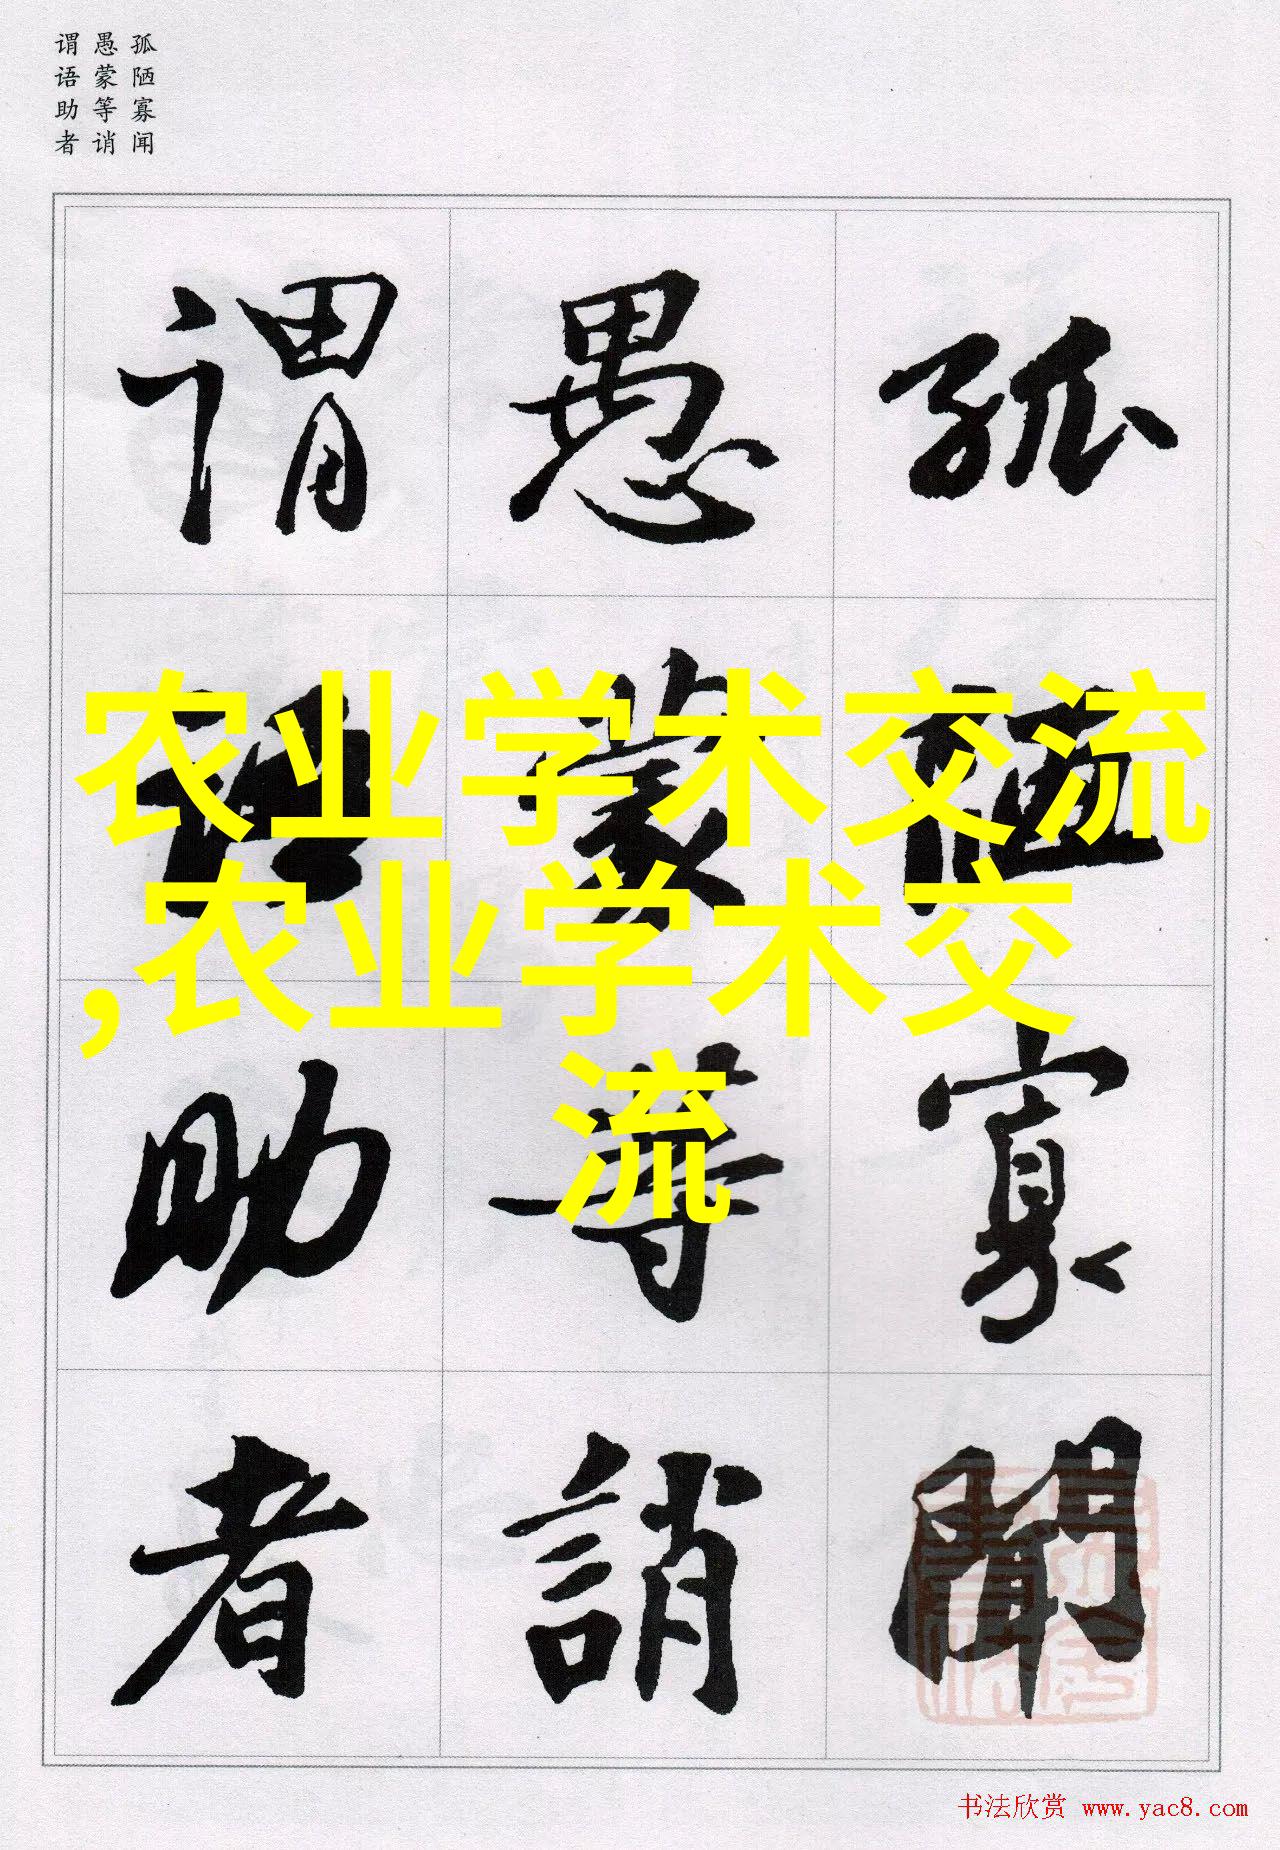 孤陋寡闻
愚蒙等诮
谓语助者
孤陋寡聞
愚蒙等誚
谓语助者
农业学术交流
,农业学术交
流
书法欣赏 www.yac8.com